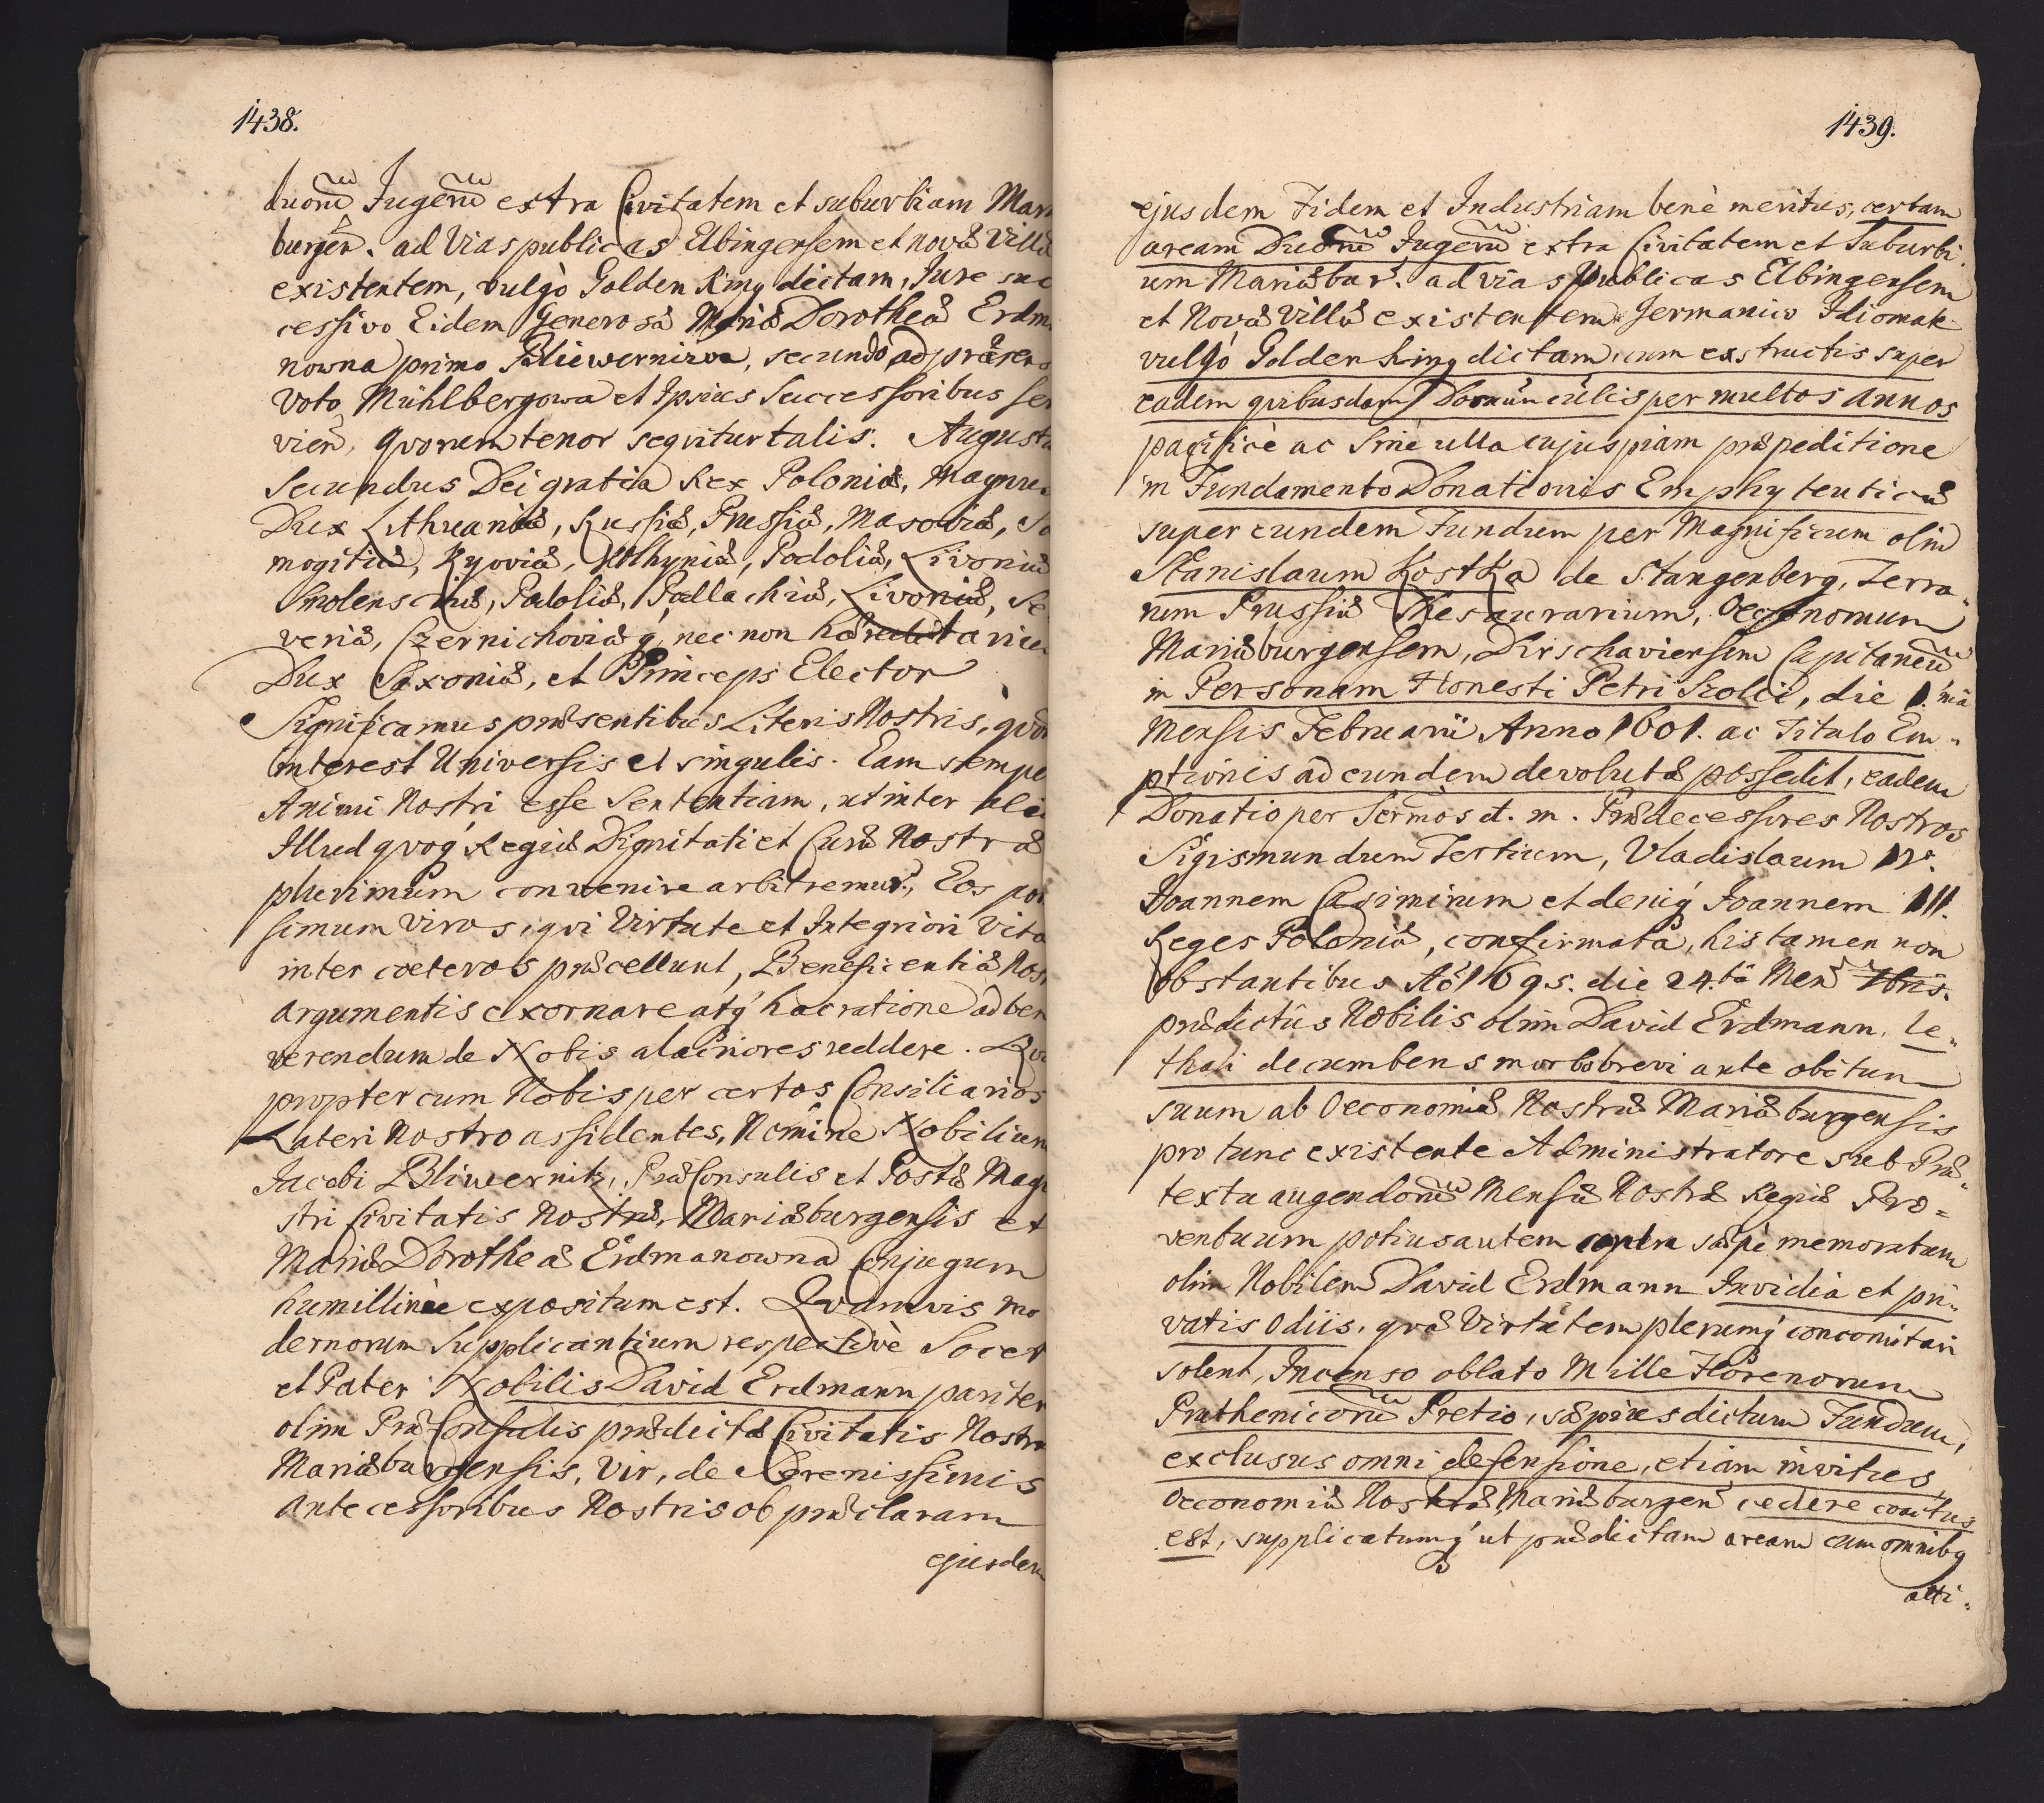 1438.
duorũ Jugerũ extra Civitatem et suburbiam Mari
burgeñ. ad Vias publicas Elbingensem et novæ Villæ
existentem, vulgò Golden Ring dictam, Jure suc
cessivo Eidem Generosæ Mariæ Dorotheæ Erdma
nowna primo Pliewernizowa, secundò ad præsens
Voto Mühlbergowa et Ipsius Successoribus ser
vieñ, quorum tenor sequitur talis. Augustus
Secundus Dei gratia Rex Poloniæ, Magnus
Dux Lithuaniæ, Russiæ, Prussiæ, Masoviæ, Sa
mogitiæ, Kyoviæ, Volhyniæ, Podoliæ, Livoniæ
Smolensciæ, Podoliæ, Podlachiæ, Livoniæ, Se
veriæ, Czernichoviæq́, nec non hæreditarius
Dux Saxoniæ, et Princeps Elector
Significamus præsentibus Literis Nostris, quor
interest Universis et singulis. Eam semper
Animi Nostri esse Sententiam, ut inter alia
Illud quoq́ Regiæ Dignitati et Curæ Nostræ
plurimùm convenire arbitremur, Eos pos
simum viros, qvi Virtute et Integriori Vita
inter coeteros præcellunt, Beneficentiæ Nost
argumentis exornare atq́ hac ratione ad ben
verendum de Nobis alacriores reddere. Qva
propter cum Nobis per certos Consiliarios
Lateri Nostro assidentes, Nomine Nobilium
Jacobi Bliwernitz, PræConsulis et Postæ Magi
stri Civitatis Nostræ, Mariæburgensis et
Mariæ Dorotheæ Erdmanowna Conjugum
humillimè expositum est. Qvamvis mo
dernorum Supplicantium respectivè Socer
et Pater Nobilis David Erdmann pariter
olim PræConsulis prædictæ Civitatis Nostræ
Mariæburgensis, Vir, de Serenissimis
Antecessoribus Nostris ob præclaram
ejusdem
1439.
ejusdem Fidem et Industriam benè meritus, certam
aream Duorũ Jugerũ extra Civitatem et Suburbi
um Mariæbur. ad vias Publicas Elbingensem
et Novæ Villæ existentem Germanico Idiomate
vulgò Golden Ring dictam, cum exstructis super
eadem quibusdam Domunculis per multos annos
pacificè ac Sine ulla cujuspiam præpeditione
in Fundamento Donationis Emphyteuticæ
super eundem Fundum per Magnificum olim
Stanislaum Kostka de Stangenberg, Terra„
rum Prussiæ Thesaurarium, Oeconomum
Mariæburgensem, Dirschaviensem Capitaneũ
in Personam Honesti Petri Szolci, die 1.mâ
Mensis Februarii Anno 1601. ac Titulo Em„
ptionis ad eundem devolutæ possedit, eadem
Donatio per Sermos d. m. Prædecessores Nostros
Sigismundum Tertium, Vladislaum IV.
Joannem Casimirum et deniq́ Joannem III.
Reges Poloniæ, confirmata, his tamen non
obstantibus Aô 1695. die 24.tâ Meñ
prædictus Nobilis olim David Erdmann, le„
thali decumbens morbo brevi ante obitum
suum ab Oeconomiæ Nostræ Mariæburgensis
pro tunc existente Administratore sub Præ„
textu augendorũ Mensæ Nostræ Regiæ Pro=
ventuum potius autem contra sæpè memoratum
olim Nobilem David Erdmann Invidiâ et pri„
vatis Odiis, qvæ Virtutem plerumq́ concomitari
solent, Incenso oblato Mille Florenorum
Pruthenicorũ Pretio, sæpius dictum Fundum,
exclusus omni defensione, etiam invitus
Oeconomiæ Nostræ, Mariæburgeñ cedere coactus
est, supplicatumq́ ut prædictam aream cum omnibq
atti„